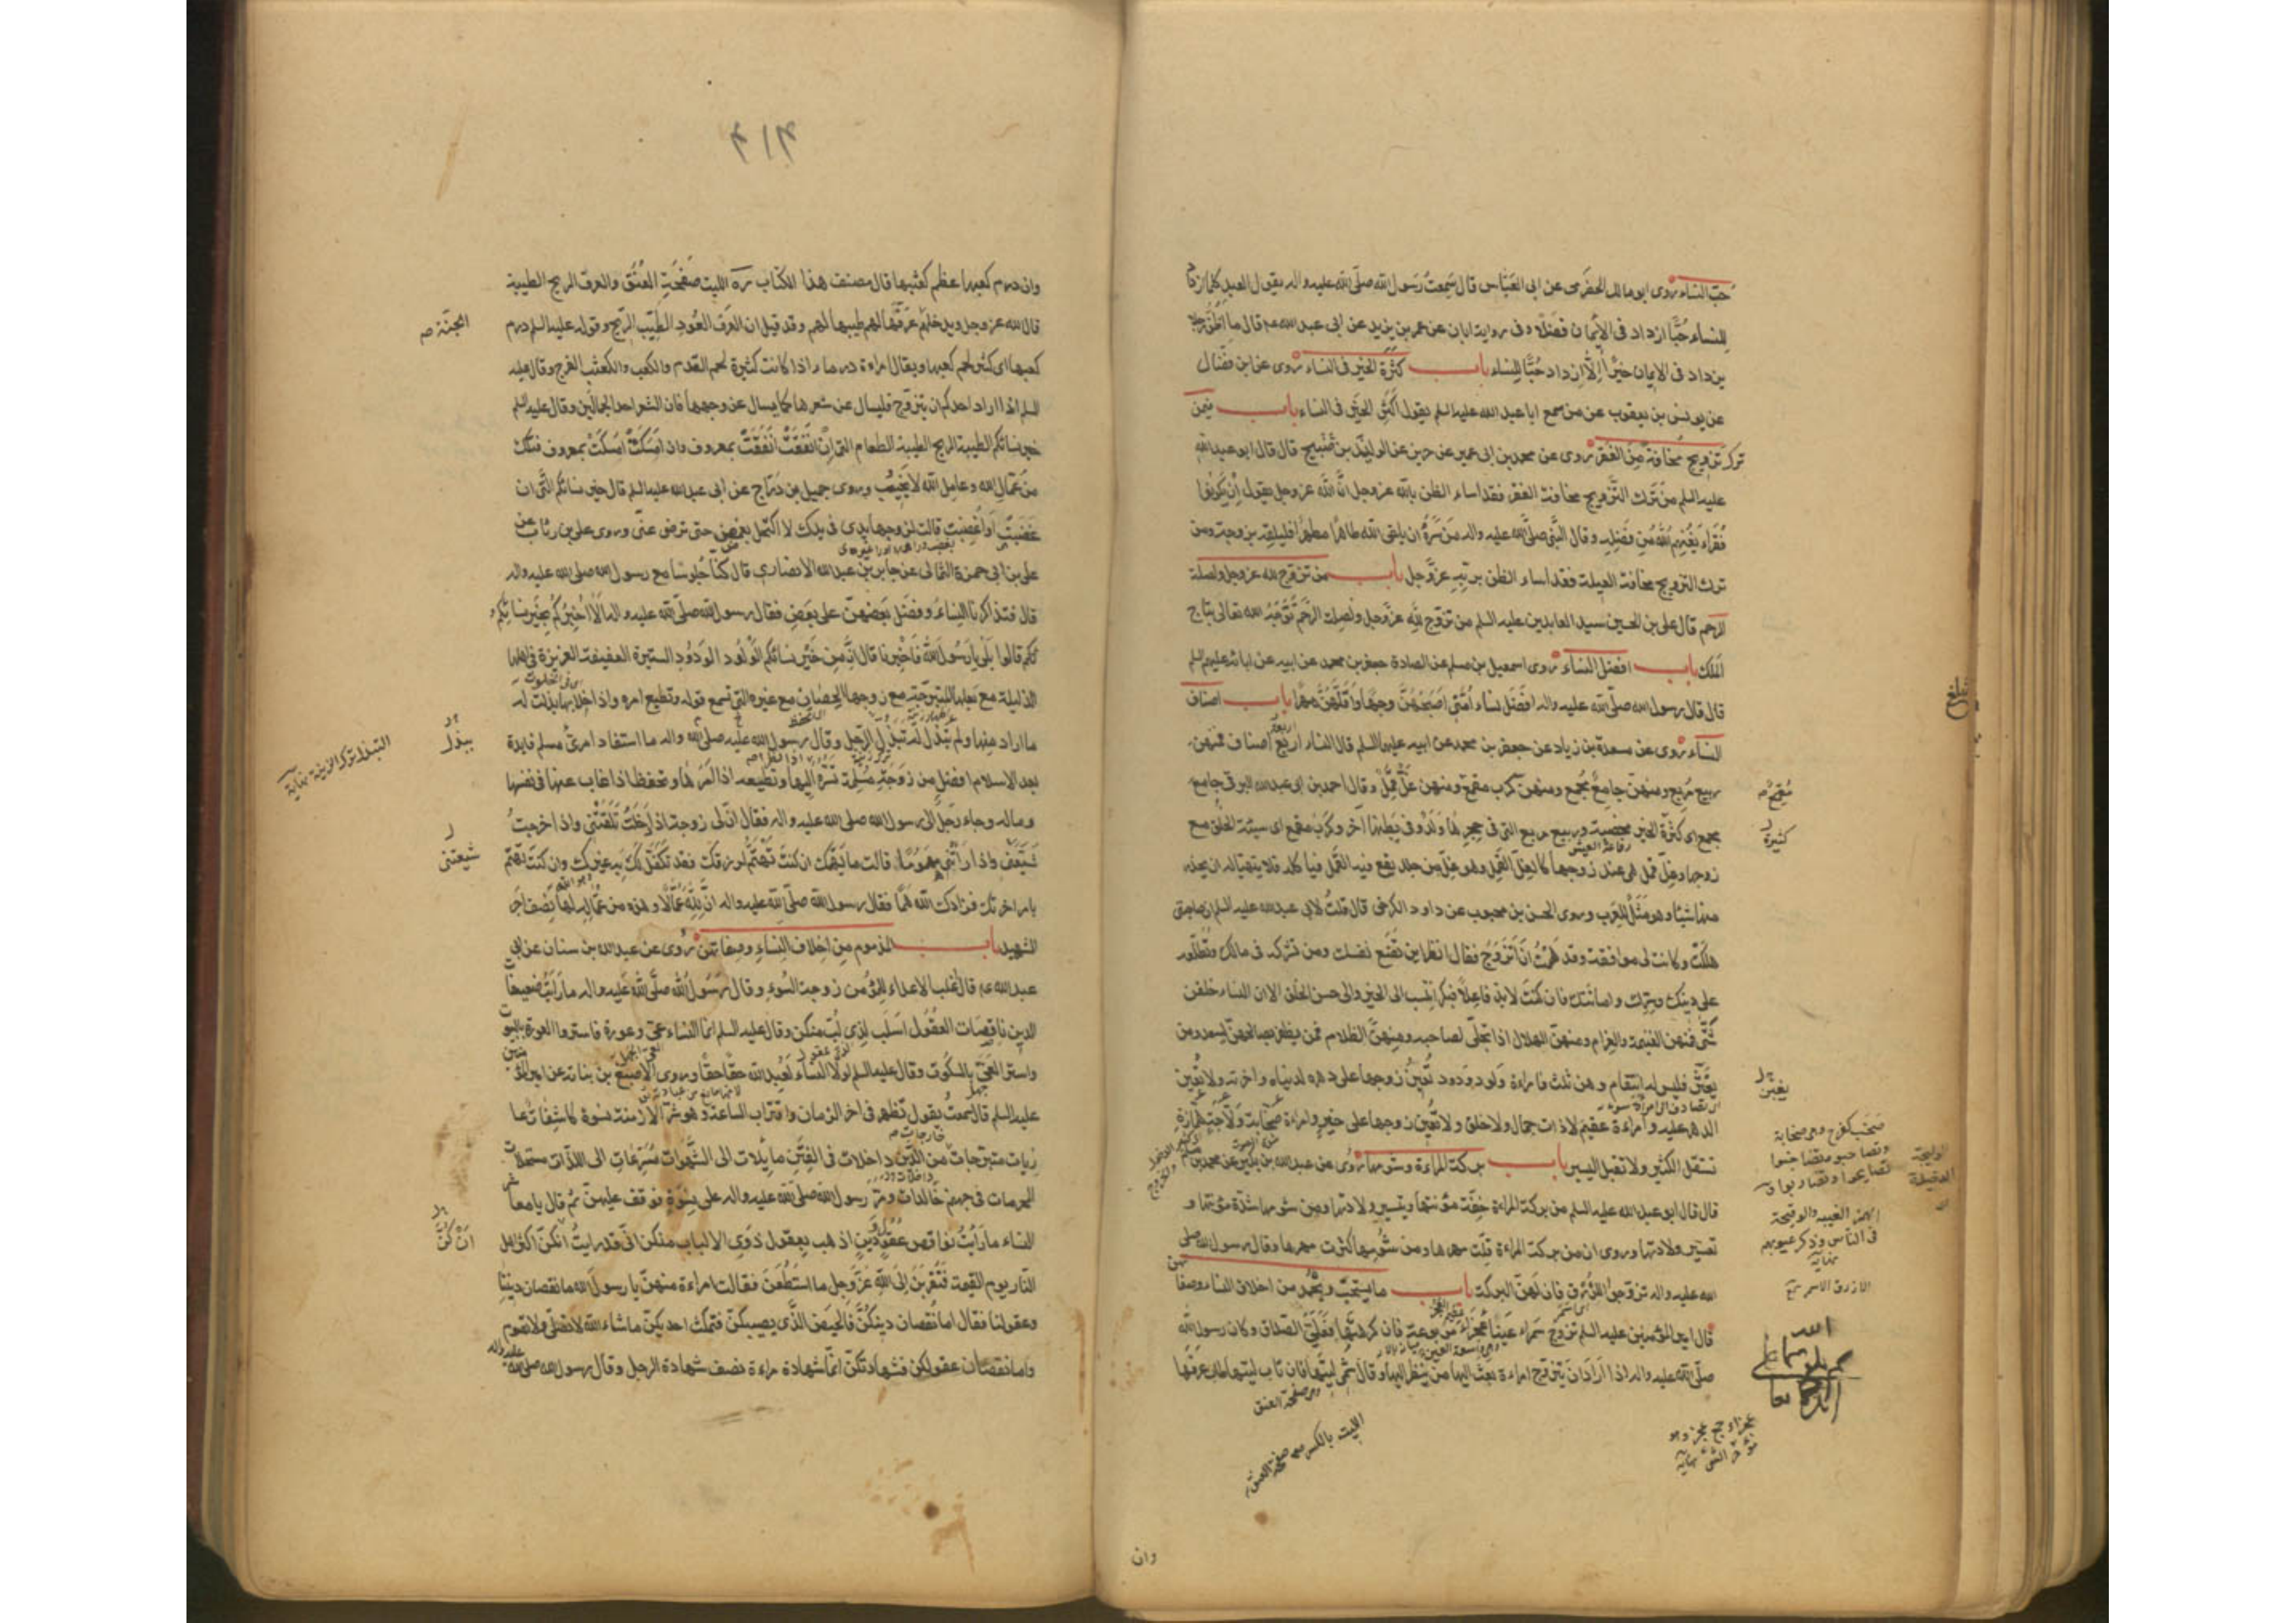 حبّ النساء روى ابو مالك الحضرمى عن ابى العباس قال سمعت رسول الله صلّى الله عليه واله يقول العبد كلما ازداد
للنساء حُبًّا ازداد فى الايمان فضلا وفى رواية ابان عن عمر بن يزيد عن ابى عبد الله عم قال ما اظن رجلا
يزداد فى الايمان خيرًا اِلّا ازداد حُبًّا للنساء باب كثرة الخير فى النساء روى عن ابن فضّال
عن يونس بن يعقوب عن من سمع ابا عبد الله عليه السلم يقول اكثر الخير فى النساء باب فيمن
ترك تزويج مخافة من الفقر روى عن محمد بن ابى عمير عن حريز عن الوليد بن صبيح قال قال ابو عبد الله
عليه السلم من ترك التزويج مخافة الفقر فقد اساء الظن بالله عز وجل انّ الله عز وجل يقول ان يكونوا
فقراء يغنهم الله من فضله وقال النّبى صلى الله عليه واله من سرّه ان يلقى الله طاهرًا مطهرًا فليلقه بزوجة ومن
ترك التزويج مخافة العيلة فقد اساء الظن بربّه عزّ وجل باب من تزوج لله عز وجل ولصلة
الرحم قال على بن الحسين سيد العابدين عليه السلم من تزوج لله عز وجل ولصلة الرحم توّجه الله تعالى بتاج
الملك باب افضل النساء روى اسمعيل بن مسلم عن الصادق جعفر بن محمد عن ابيه عن ابائه عليهم السلم
قال قال رسول الله صلّى الله عليه واله افضل نساء امتى اصبحهنّ وجها واقلهنّ مهرًا باب اصناف
النساء روى عن مسعدة بن زياد عن جعفر بن محمد عن ابيه عليهما السلم قال النساء اربع اصناف فمنهن
ربيع مربع ومنهن جامع مجمع ومنهن كرب مقمع ومنهن غلّ قمل وقال احمد بن ابى عبد الله البرقى جامع
مجمع اى كثيرة الخير مخصبة وربيع مربع التى فى حجرها ولد وفى بطنها اخر وكرب مقمع اى سيئة الخلق مع
زوجها وغلّ قمل هى عند زوجها كالغل القمل وهو غلّ من جلد يقع فيه القمل فياكله فلا يتهيأ له ان يحله
منها شيئا وهو مثل للعرب وروى الحسن بن محبوب عن داود الكرخى قال قلت لابى عبد الله عليه السلم ان صاحبتى
هلكت وكانت لى موافقة وقد هممت ان اتزوج فقال انظر اين تضع نفسك ومن تشركه فى مالك وتطلعه
على دينك وسرك وامانتك فان كنت لا بد فاعلًا فبكر اتنسب الى الخير والى حسن الخلق الا ان النساء خلقن
شتّى فمنهن الغنيمة والغرام ومنهن الهلال اذا تجلّى لصاحبه ومنهنّ الظلام فمن يظفر بصالحهنّ يسعد ومن
يغبن فليس له انتقام وهن ثلث فامراة ولود ودود تعين زوجها على دهره لدنياه واخرته ولا تعين
الدهر عليه وامراءة عقيم لا ذات جمال ولا خلق ولا تعين زوجها على خير وامراءة صخّابة ولّاجة همّازة
تستقل الكثير ولا تقبل اليسير باب بركة المراءة وشومها روى عن عبد الله بن بكير عن محمد بن مسلم
قال قال ابو عبد الله عليه السلم من بركة المراءة خفّة مؤنتها وتيسير ولادتها ومن شومها شدّة مؤنتها و
تعسير ولادتها وروى ان من بركة المراءة قلة مهرها ومن شومها كثرت مهرها وقال رسول الله صلى
الله عليه واله تزوجوا الزرق فان لهن البركة باب ما يستحبّ ويحمد من اخلاق النساء وصفاتهن
قال امير المؤمنين عليه السلم تزوج سمراء عيناء عجزاء مربوعة فان كرهتها فعلىّ الصداق وكان رسول الله
صلى الله عليه واله اذا اراد ان يتزوج امراءة بعث اليها من ينظر اليها وقال شمى ليتها فان طاب ليتها طاب عرفها
رفاغة العيش
مقمح
كثيرة
يغبن
صخب كفرح وهى صخابة
الولجة
الدخيلة
الهمز الغيبه والوقيعة
فى الناس وذكر عيوبهم
نهاية
عجزاء جمع عجز وهو
مؤخر الشئ نهاية
الليت بالكسر صفحة العنق
وهى صفحة العنق
بلغ
وان
٣١٣
وان درم كعبها عظم كعثبها قال مصنف هذا الكتاب ره الليت صفحة العنق والعرف الريح الطيبة
قال الله عز وجل ويدخلهم عرّفها لهم اى طيبها لهم وقد قيل ان العرف العود الطيب الريح وقوله عليه السلم درم
كعبها اى كثر لحم كعبها ويقال امراءة درماء اذا كانت كثيرة لحم القدم والكعب والكعثب الفرج وقال عليه
السلم اذا اراد احدكم ان يتزوج فليسال عن شعرها كما يسال عن وجهها فان الشعر احد الجمالين وقال عليه السلم
خير نسائكم الطيبة الريح الطيبة الطعام التى ان انفقت انفقت بمعروف وان امسكت امسكت بمعروف فتلك
من عمّال الله وعامل الله لا يخيب وروى جميل بن درّاج عن ابى عبد الله عليه السلم قال خير نسائكم التى ان
غضبت او اغضبت قالت لزوجها يدى فى يدك لا اكتحل بغمض حتى ترضى عنّى وروى على بن رئاب عن
على بن ابى حمزة الثمالى عن جابر بن عبد الله الانصارى قال كنّا جلوسا مع رسول الله صلى الله عليه واله
قال فتذاكرنا النساء وفضل بعضهنّ على بعض فقال رسول الله صلّى الله عليه واله الا اخبركم بخير نسائكم
قالوا بلى يا رسول الله فاخبرنا قال انّ من خير نسائكم الولود الودود الستيرة العفيفة العزيزة فى اهلها
الذليلة مع بعلها المتبرّجة مع زوجها الحصان مع غيره التى تسمع قوله وتطيع امره واذا خلا بها بذلت له
ما اراد منها ولم تبذل له تبذل الرجل وقال رسول الله صلى الله عليه واله ما استفاد امرئ مسلم فايدة
بعد الاسلام افضل من زوجة مسلمة تسره اذا نظر اليها وتطيعه اذا امرها وتحفظه اذا غاب عنها فى نفسها
وماله وجاء رجل الى رسول الله صلى الله عليه واله فقال انّ لى زوجة اذا دخلت تلقتنى واذا خرجت
شيّعتنى واذا راتنى مهمومًا قالت ما يهمك ان كنت تهتمّ لرزقك فقد تكفل لك به غيرك وان كنت تهتمّ
بامر اخرتك فزادك الله همّا فقال رسول الله صلى الله عليه واله انّ لله عمّالًا وهذه من عمّاله لها نصف اجر
الشهيد باب المذموم من اخلاق النساء وصفاتهنّ روى عن عبد الله بن سنان عن ابى
عبد الله عم قال اغلب الاعداء للمؤمن زوجة السوء وقال رسول الله صلّى الله عليه واله ما رايت ضعيفات
الدين ناقصات العقول اسلب لذى لب منكن وقال عليه السلم انما النساء عىّ وعورة فاستروا العورة بالبيوت
واستروا العىّ بالسكوت وقال عليه السلم لولا النساء لعبد الله حقا حقا وروى الاصبغ بن نباتة عن امير المؤمنين
عليه السلم قال سمعته يقول تظهر فى اخر الزمان واقتراب الساعة وهو شرّ الازمنة نسوة كاشفات عا
ريات متبرجات من الدّين داخلات فى الفتن مايلات الى الشهوات مسرعات الى اللذّات مستحلات
للمحرمات فى جهنم خالدات ومرّ رسول الله صلى الله عليه واله على نسوة فوقف عليهنّ ثم قال يا معاشر
النساء ما رايت نواقص عقول ودين اذهب بعقول ذوى الالباب منكن انّى قد رايت انكنّ اكثر اهل
النار يوم القيمة فتقرّبن الى الله عز وجل ما استطعن فقالت امراءة منهنّ يا رسول الله ما نقصان ديننا
وعقولنا فقال اما نقصان دينكنّ فالحيض الّذى يصيبكنّ فتمكث احديكنّ ما شاء الله لا تصلى ولا تصوم
واما نقصان عقولكن فشهادتكنّ انّما شهادة المراءة نصف شهادة الرجل وقال رسول الله صلى الله عليه واله
الجنّة
يبذل
التبذل ترك الزينة نهاية
شيعتنى
انكنّ